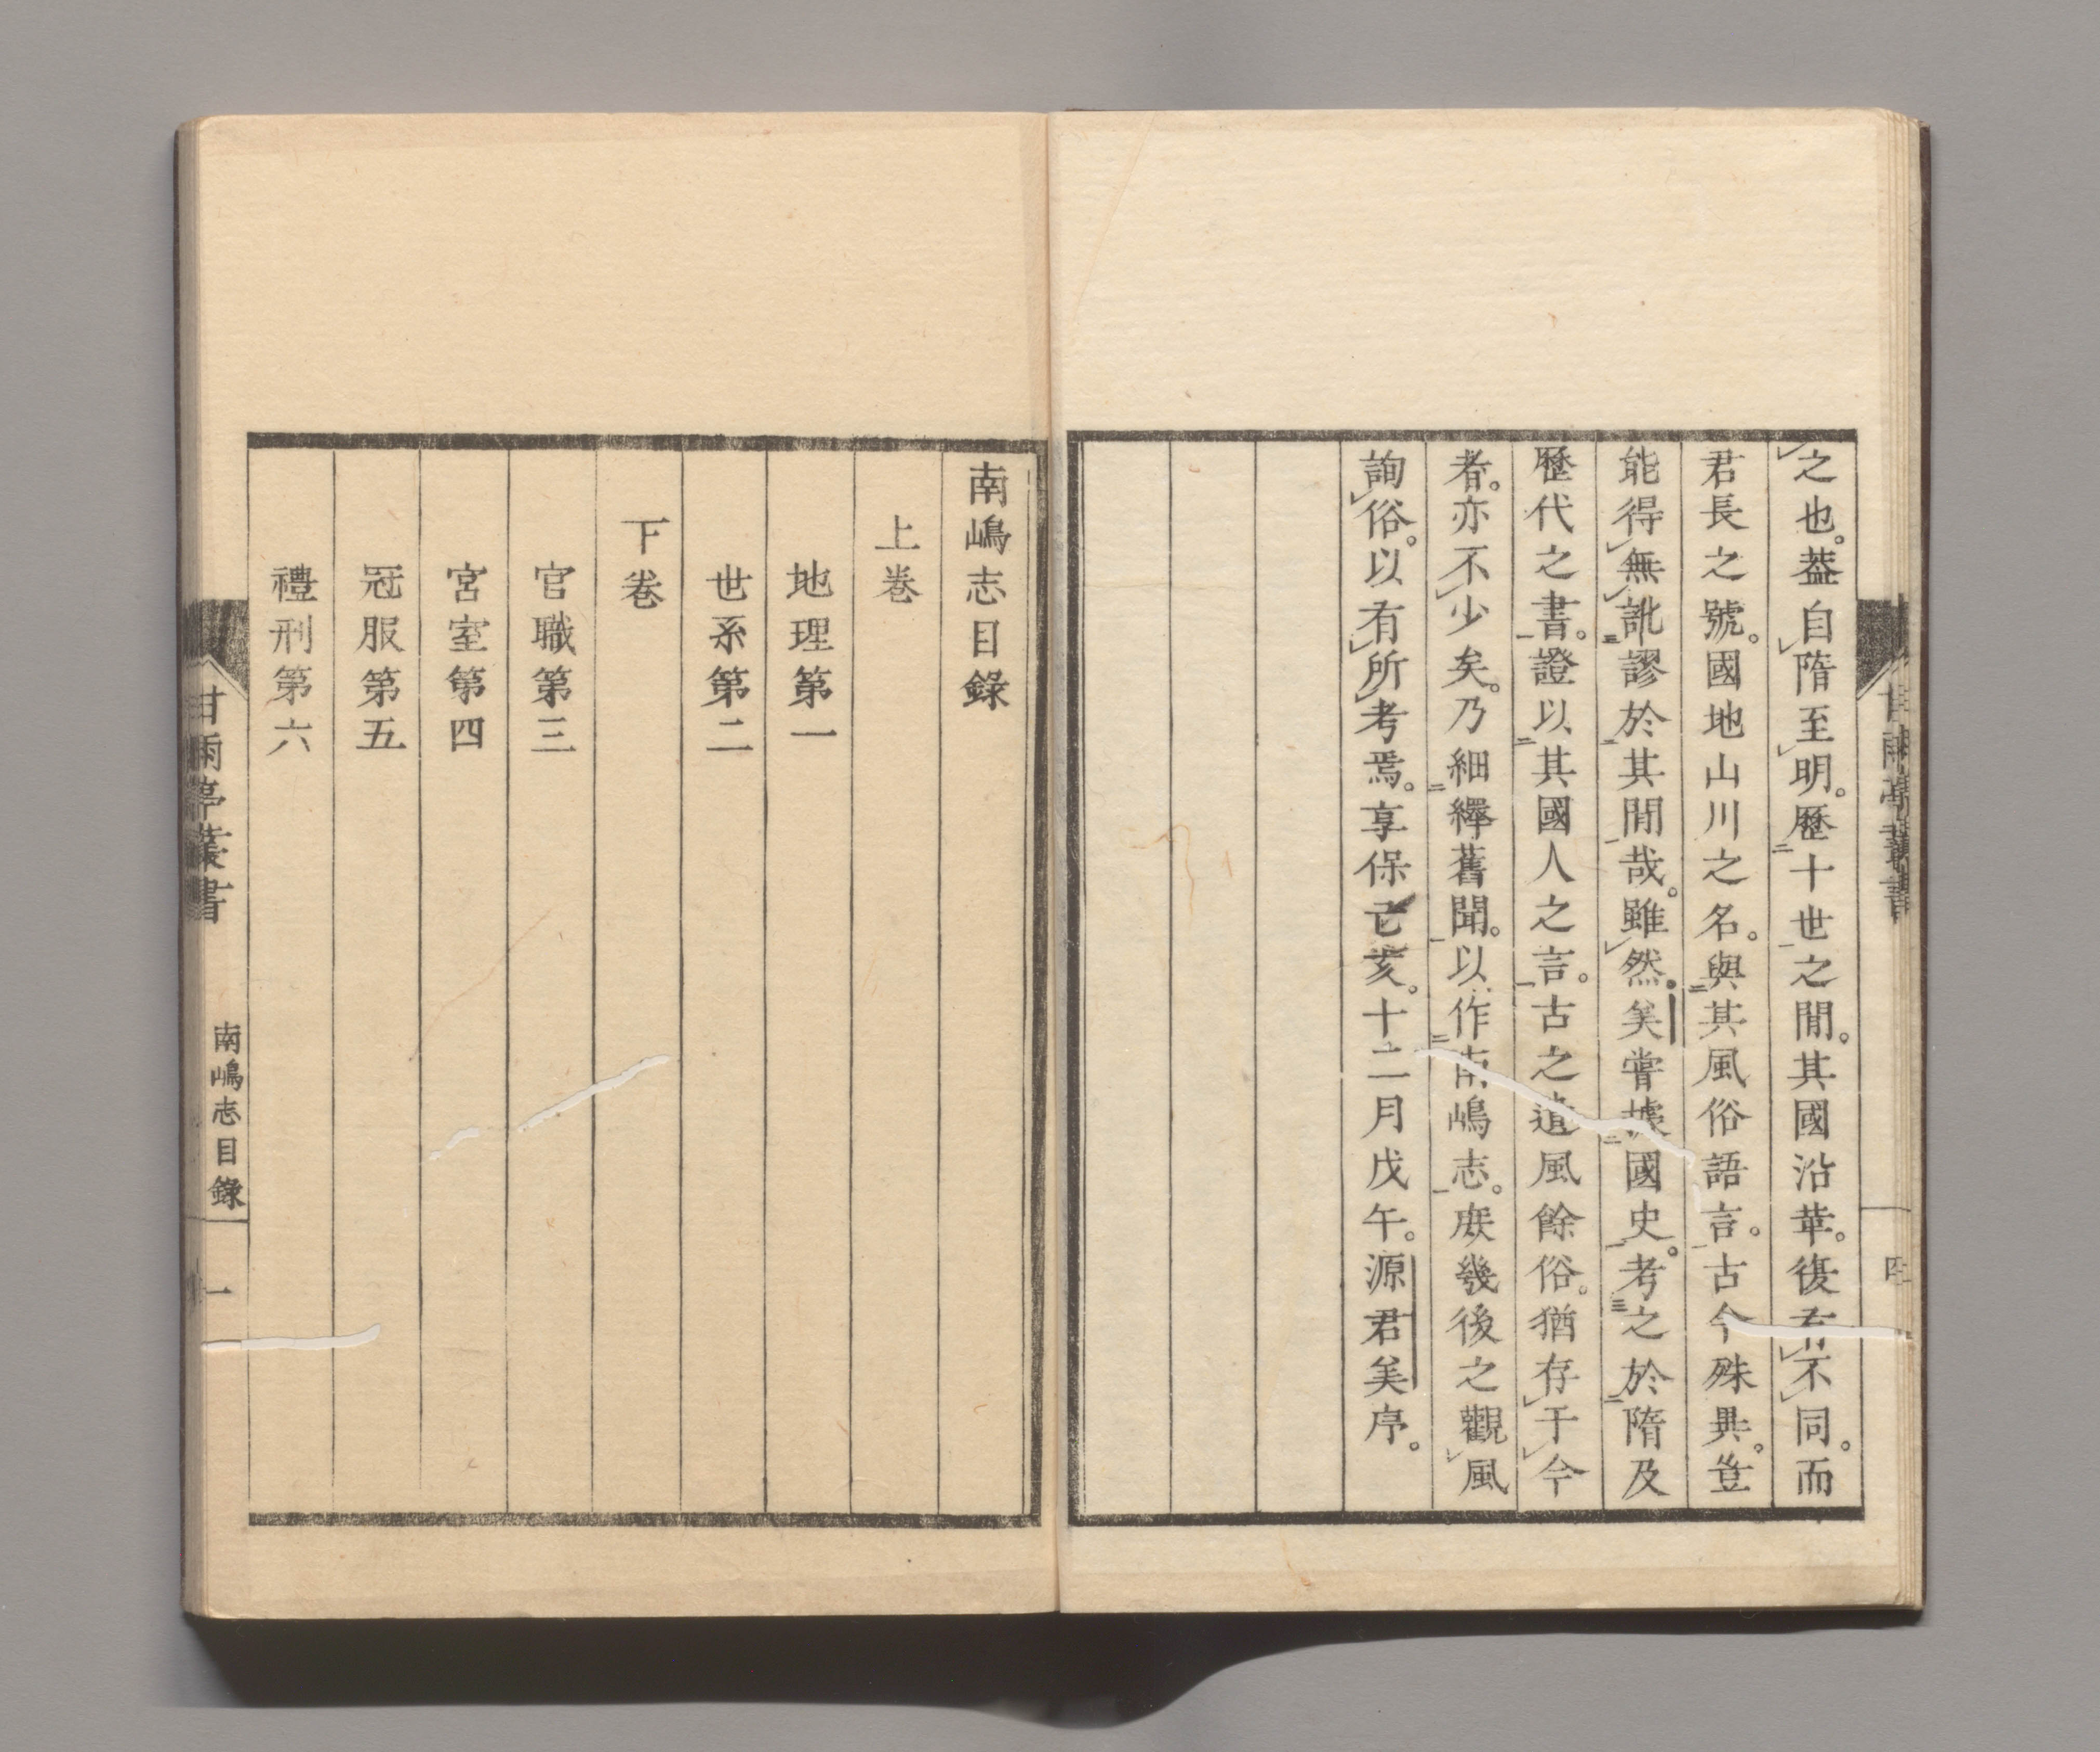 之也。葢自隋至明。歷十世之閒。其國沿革。復有不同。而
君長之號。國地山川之名。與其風俗語言。古今殊異。豈
能得無訛謬於其閒哉。雖然。美嘗據國史。考之於隋及
歷代之書。證以其國人之言。古之遺風餘俗。猶存于今
者。亦不少矣。乃細繹舊聞。以作南嶋志。庶幾後之觀風
詢俗。以有所考焉。享保己亥。十二月戊午。源君美序。
甘雨亭叢書
四
南嶋志目錄
上卷
地理第一
世系第二
下卷
官職第三
宮室第四
冠服第五
禮刑第六
甘雨亭叢書
南嶋志目錄
一